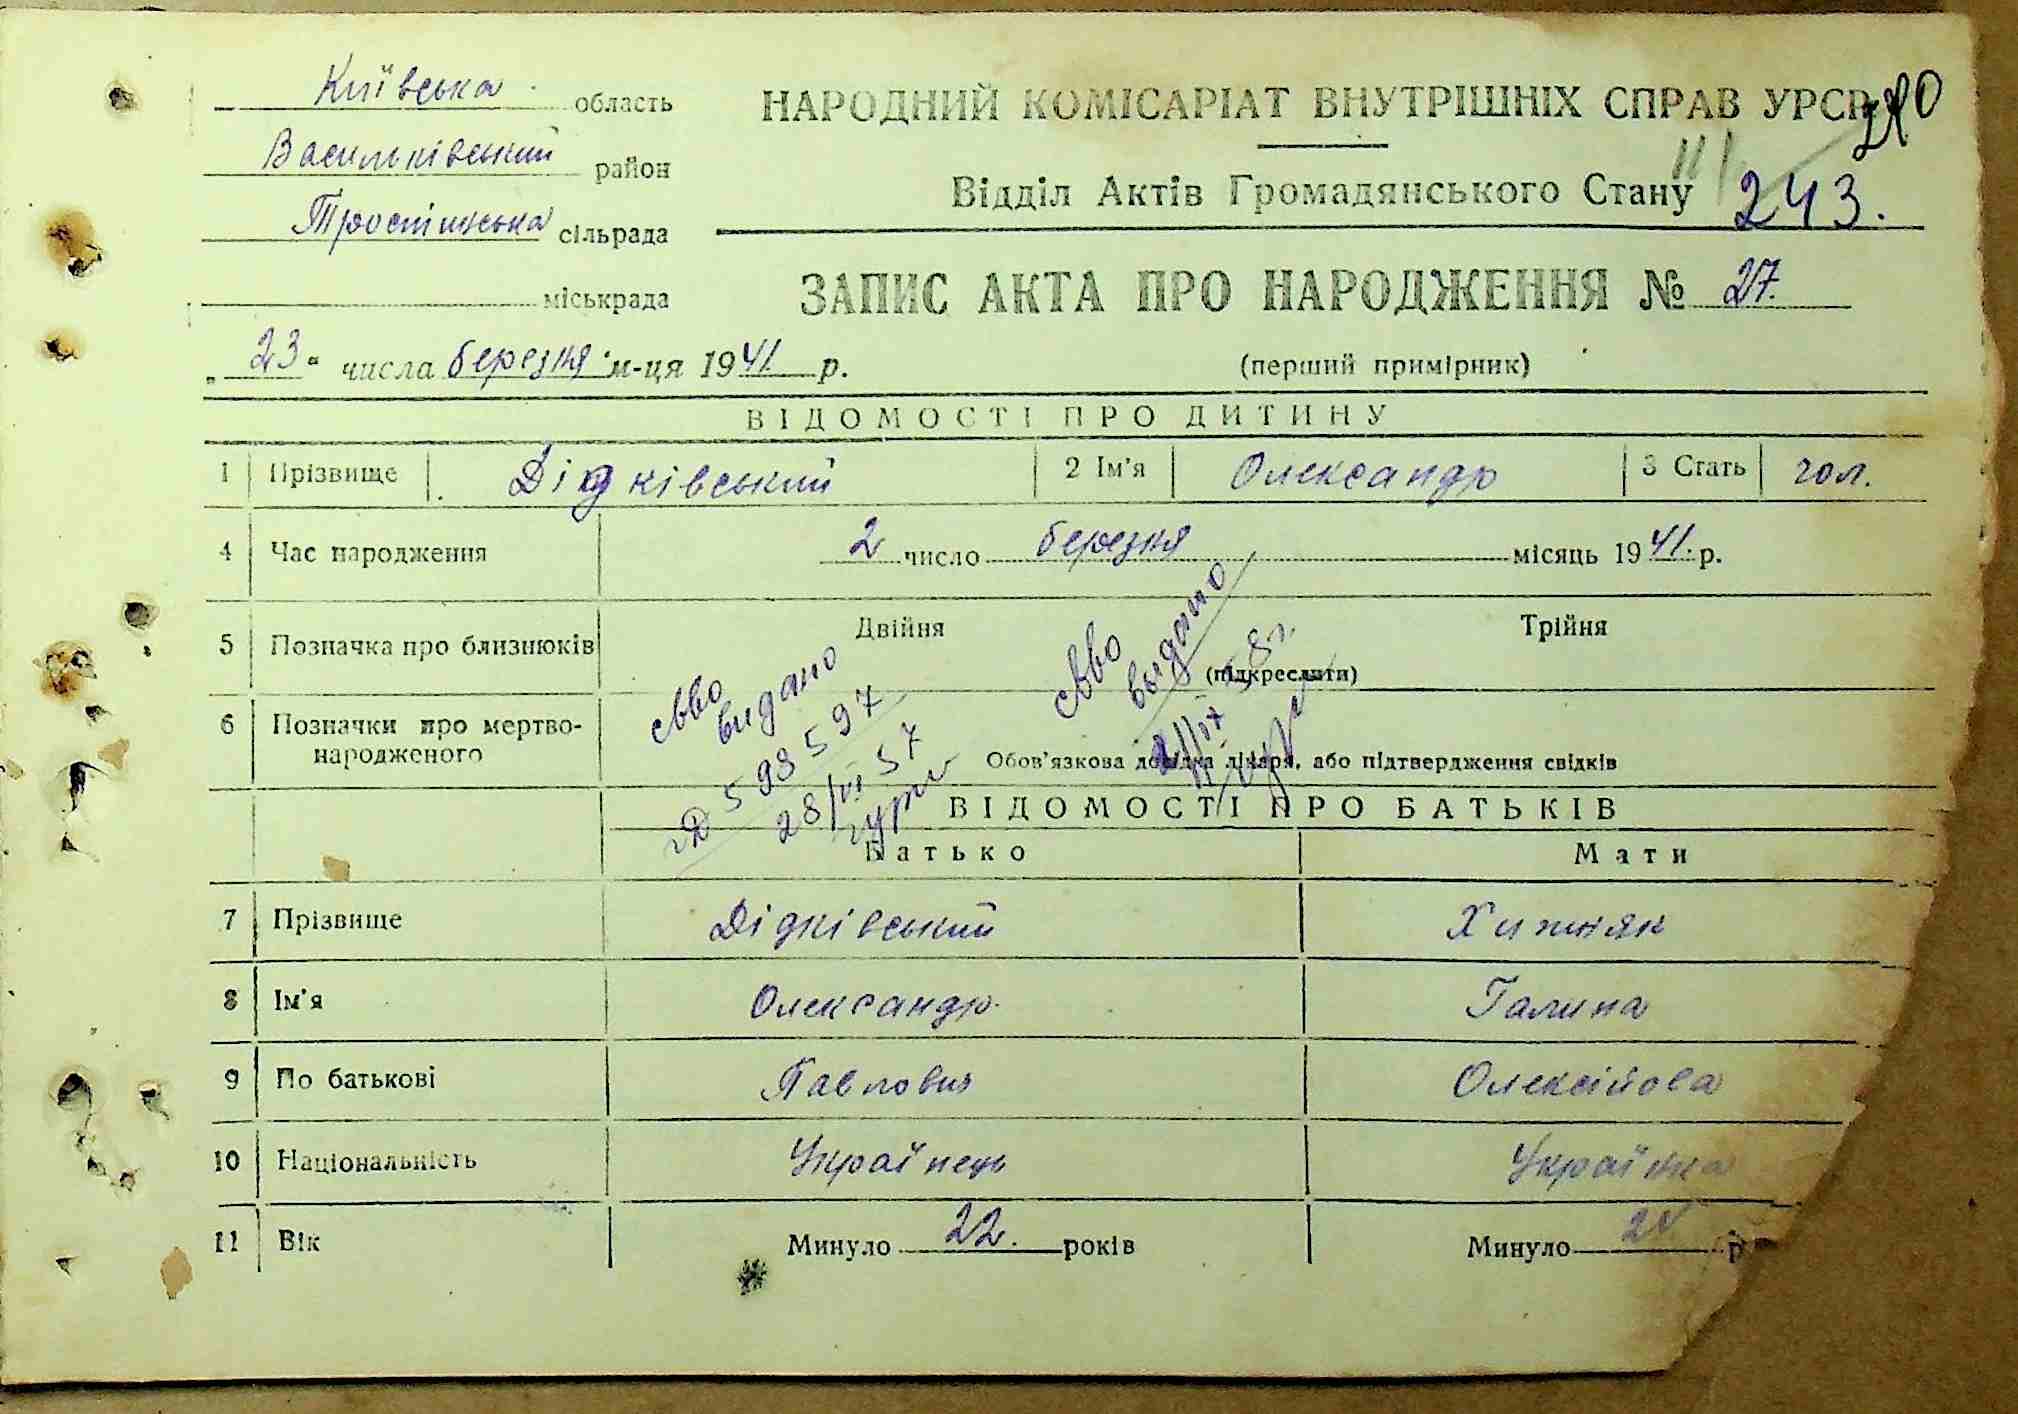 Київська область
Васильківський район
Тростинська сільрада
міськрада
НАРОДНИЙ КОМІСАРІАТ ВНУТРІШНІХ СПРАВ УРСР
Відділ Актів Громадянського Стану
243.
ЗАПИС АКТА ПРО НАРОДЖЕННЯ № 27.
„23“ числа березня м-ця 1941 р.
(перший примірник)
ВІДОМОСТІ ПРО ДИТИНУ
1 Прізвище Дідківський 2 Ім'я Олександр 3 Стать чол.
4 Час народження 2 число березня місяць 1941. р.
5 Позначка про близнюків Двійня Трійня
(підкреслити)
6 Позначки про мертво-
народженого
Обов'язкова довідка лікаря, або підтвердження свідків
свво
видано
598597
28/VI 57
свво
выдано
ВІДОМОСТІ ПРО БАТЬКІВ
Батько Мати
7 Прізвище Дідківський Хижняк
8 Ім'я Олександр Галина
9 По батькові Павлович Олексійова
10 Національність Українець Українка
11 Вік Минуло 22. років Минуло р